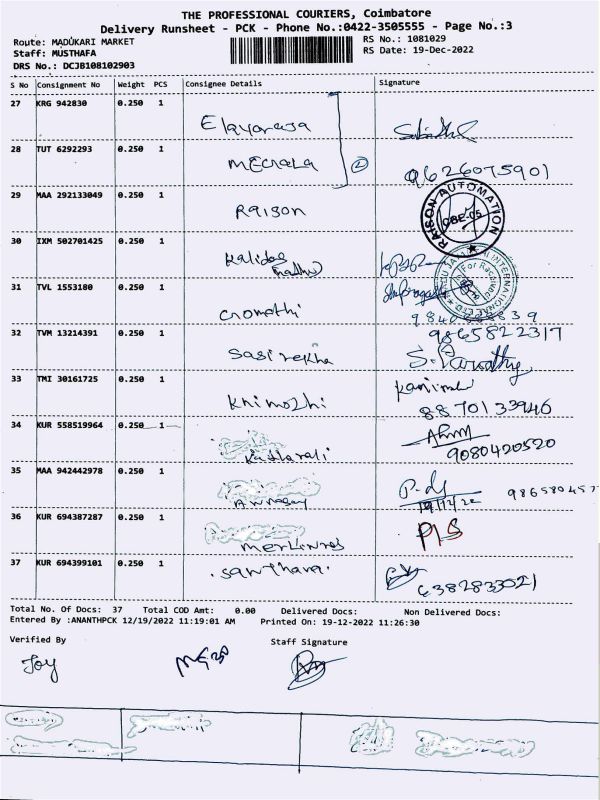 THE PROFESSIONAL COURIERS, Coimbatore
Delivery Runsheet - PCK - Phone No.:0422-3505555 - Page No.:3
Route: MADUKARI MARKET RS No.: 1081029
Staff: MUSTHAFA RS Date: 19-Dec-2022
DRS No.: DCJB108102903
S No Consignment No Weight PCS Consignee Details Signature
27 KRG 942830 0.250 1
Elayaraja
28 TUT 6292293 0.250 1
Mechala 9626075901
29 MAA 292133049 0.250 1
Raison RAISON AUTOMATION CBE-05
30 IXM 502701425 0.250 1
Kalidas
31 TVL 1553180 0.250 1
Gomathi
32 TVM 13214391 0.250 1 9865822317
Sasirekha S. Parvathy
33 TMI 30161725 0.250 1
Knimozhi 8870133946
34 KUR 558519964 0.250 1
9080420520
35 MAA 942442978 0.250 1
19/12/22
36 KUR 694387287 0.250 1
37 KUR 694399101 0.250 1
Santhara 6382833021
Total No. Of Docs: 37 Total COD Amt: 0.00 Delivered Docs: Non Delivered Docs:
Entered By :ANANTHPCK 12/19/2022 11:19:01 AM Printed On: 19-12-2022 11:26:30
Verified By Staff Signature
Joy